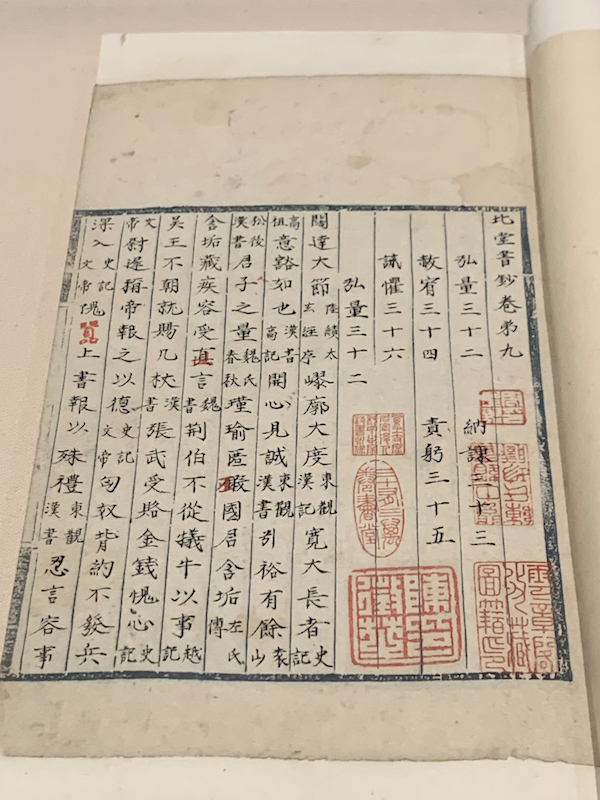 北堂書鈔卷弟九
弘量三十二 納諫三十三
赦宥三十四 責躬三十五
誡懼三十六
弘量三十二
闊達大節 陸績太玄經序 嶚廓大度 東觀漢記 寬大長者 史記
高祖意豁如也 漢書高記 開心見誠 東觀漢書 引裕有餘 袁山
松後漢書 君子之量 魏氏春秋 瑾瑜匿瑕國君含垢 左氏傳
含垢藏疾容受直言 魏書 荆伯不從犧牛以事 越記
吴王不朝就賜几杖 漢書 張武受賂金錢愧心 史記
文帝 尉帝報之以德 史記文帝 匈奴背約不發兵
深入 史記文帝 愧上書報以殊禮 東觀漢書 忍言容事